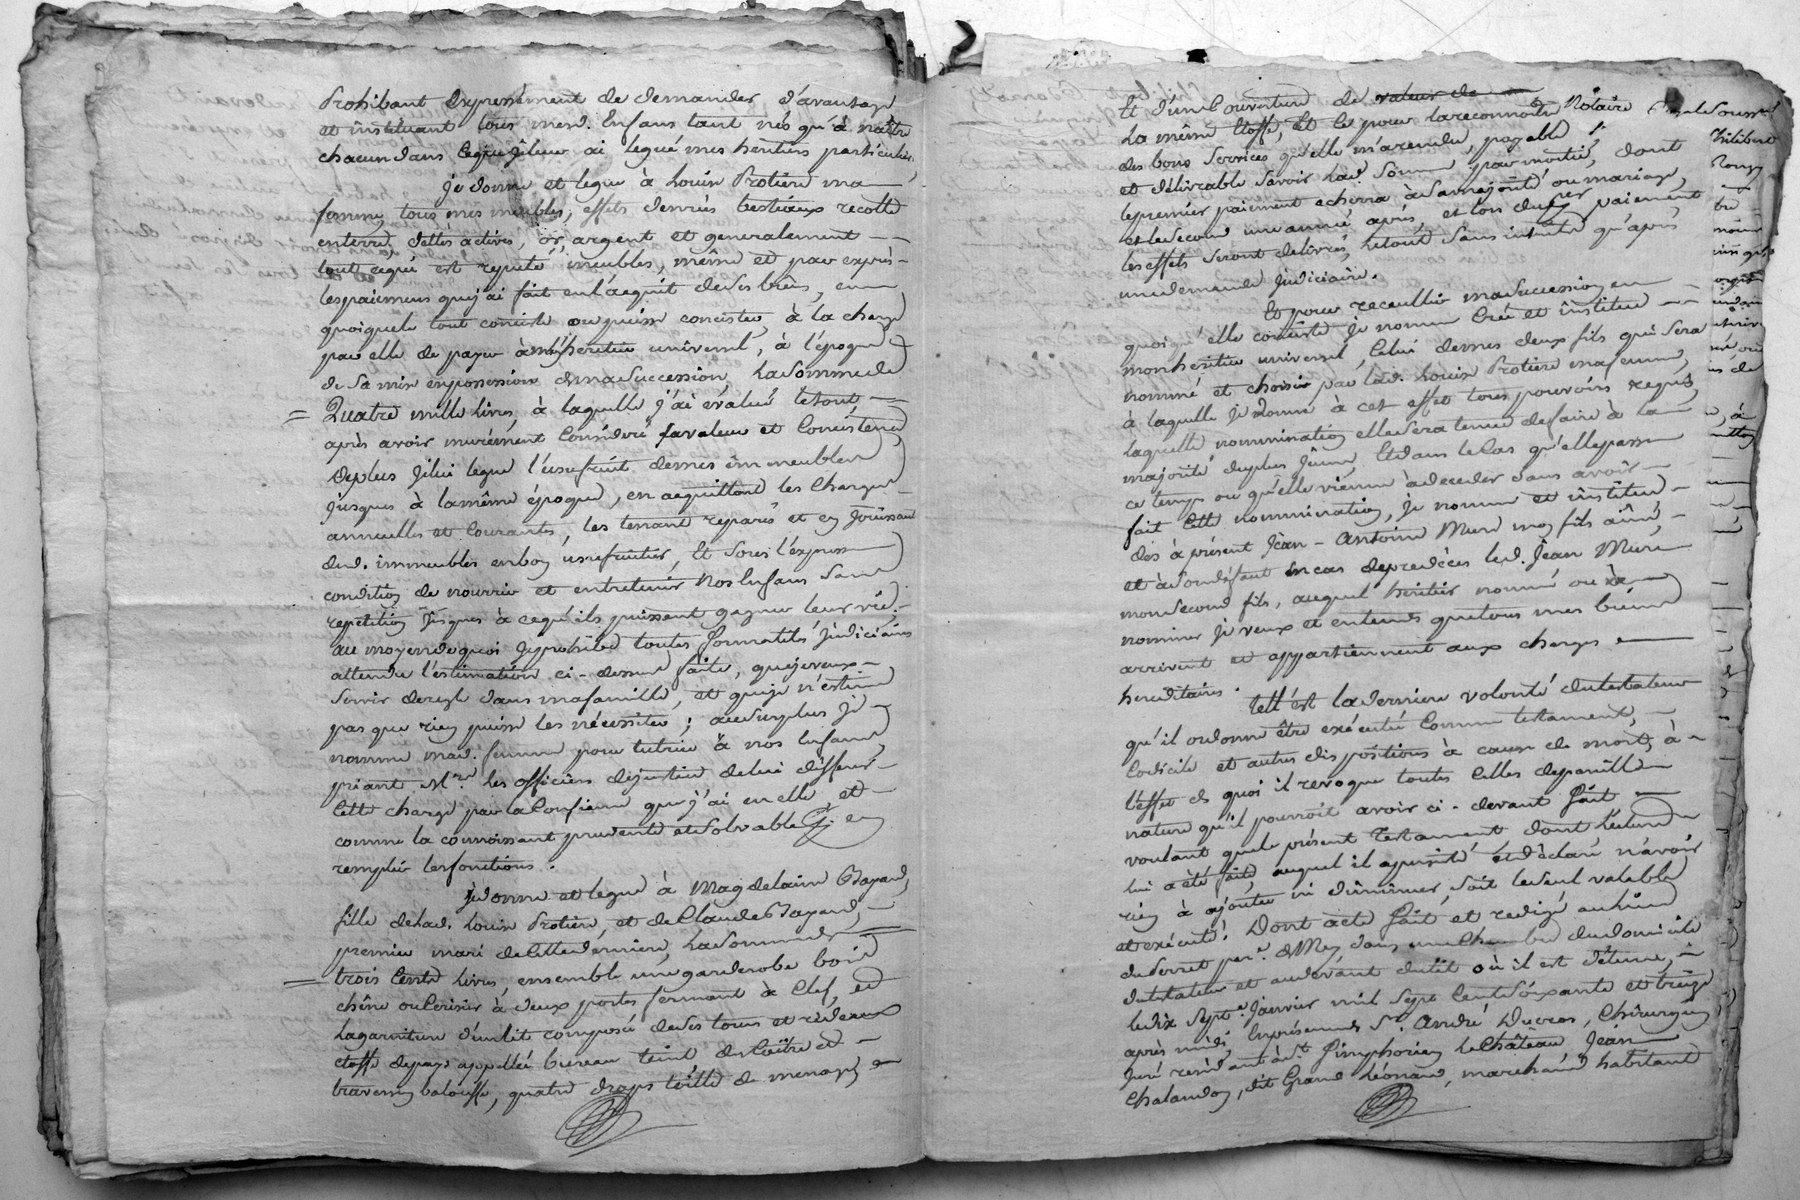 Prohibant Expressément de demander d'avantage
et instituant tous mesd. Enfans tant nés qu'à naître
chacun dans ceque jeleur ai legué mes heritiers particuliers,
je donne et legue à Louise Protiere ma
femme, tous mes meubles, effets denrées bestiaux recolte
enterre, dettes actives, or, argent et generalement
tout cequi est reputé meubles, même et par exprès
les paiemens quej'ai fait enl'acquit desesbiens, en
quoique le tout consiste ou puisse consister, à la charge
par elle de payer à monheritier universel, à l'époque
de sa mise en possession demasuccession, lasomme de
Quatre mille livres, à laquelle j'ai évalué letout
après avoir murement Consideré lavaleur et Consistence
Deplus jelui legue l'usufruit demes immeubles
jusques à lamême époque, en acquittant les charges
annuelles et Courantes, les tenant reparés et en jouissant
desd. immeubles enbon usufruitier, Et sous l'expresse
condition de nourrir et entretenir Nos Enfans sans
repetition jusques à cequ'ils puissent gagner leur vie,
au moyendequoi jeprohibe toutes formalités judiciaires
attendu l'estimation ci-dessus faite, quejeveux
servir deregle dans mafamille, et queje n'estime
pas que rien puisse les nécessiter ; au surplus je
nomme mad. femme pour tutrice à nos Enfans,
priant Mrs. les officiers dejustice delui déferer
Cette charge par la Confiance que j'ai en elle et
comme la connoissant prudente et solvable et en
remplir lesfonctions.
je donne et legue à Magdelaine Bayard,
fille delad. Louise Protiere, et de Claude Bayard,
premier mari de cettederniere, lasomme de
trois Cents livres, ensemble une garderobe bois
chêne ou Cerisier à deux portes fermant à Clef, et
lagarniture d'unlit composée deses tours et rideaux
etoffe dupays appellée bureau teint
traversin balouffe, quatre draps toille de menage
Et d'une Couverture de valeur de
la même Etoffe, Et ce pour lareconnoitre
des bons services qu'elle m'arendu, payable
et délivrable savoir lad. somme par moitié, dont
lepremier paiement echerra àsamajorité ou mariage,
et lesecond une année après, et lors du 1er paiement
les effets seront delivrés, letout sans interêt qu'après
une demande judiciaire.
Et pour recueillir masuccession en
quoiqu'elle consiste je nomme Crée et institue
monhéritier universel, Celui demes deux fils qui sera
nommé et choisi par lad. Louise Protiere mafemme,
à laquelle je donne à cet effet tous pouvoirs requis
laquelle nommination ellesera tenue defaire à la
majorité duplus jeune, Et dans le Cas qu'ellepasse
ce temps ou qu'elle vienne àdeceder sans avoir
fait Cette nommination, je nomme et institue
dès à présent Jean-Antoine Mure mon fils aîné,
et àsondéfaut en cas depredecès led. Jean Mure
monsecond fils, auquel héritier nommé ou à
nommer je veux et entends quetous mes biens
arrivent et appartiennent aux charges
hereditaires.
Telle est la derniere volonté dutestateur
qu'il ordonne être exécutée Comme testament,
Codicile et autres dispositions à cause de mort, à
l'effet de quoi il revoque toutes Celles depareille
nature qu'il pourroit avoir ci-devant fait
voulant quele présent Testament, dont lecture
lui a été faite, auquel il apersisté et déclaré n'avoir
rien à ajouter ni diminuer, soit leseul valable
et exécuté. Dont acte fait et redigé aulieu
duserret par. de dans une Chambre dudomicile
dutestateur et audevant dulit où il est détenu,
ledix sept. janvier mil sept Centsoixante et treize
après midi, Enprésence de Sr. André Ducros, Chirurgien
juré residant à St. Simphorien le Château, Jean
Chalandon, dit Grand Léonard, marchand habitant
Notaire
Philibert